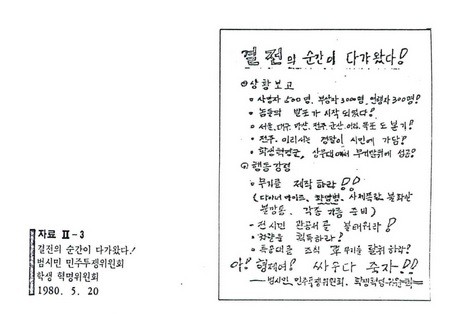 결전의 순간이 다가왔다!
⊙상황보고
○ 사망자 500명, 부상자 3000명, 연행자 3000명!
○ 놈들의 발포가 시작 되었다!
○ 서울, 대구, 마산, 전주, 군산, 이리, 목포 도 봉기!
○ 전주, 이리서는 경찰이 시민에 가담!
○ 학생혁명군, 상무대에서 무기탈취에 성공!
⊙행동강령
○ 무기를 제작 하라!!
(다이너마이트, 화염병, 사제폭탄, 불화살
불방울, 각종 기름 준비)
○ 전시민 관공서를 불태워라!
○ 차량을 획득하라!
○ 특공대를 조직 군 무기를 탈취 하라!
아! 형제여! 싸우다 죽자!!
범시민 민주투쟁위원회, 학생혁명위원회
자료 Ⅱ-3
결전의 순간이 다가왔다!
범시민 민주투쟁위원회
학생 혁명위원회
1980. 5. 20